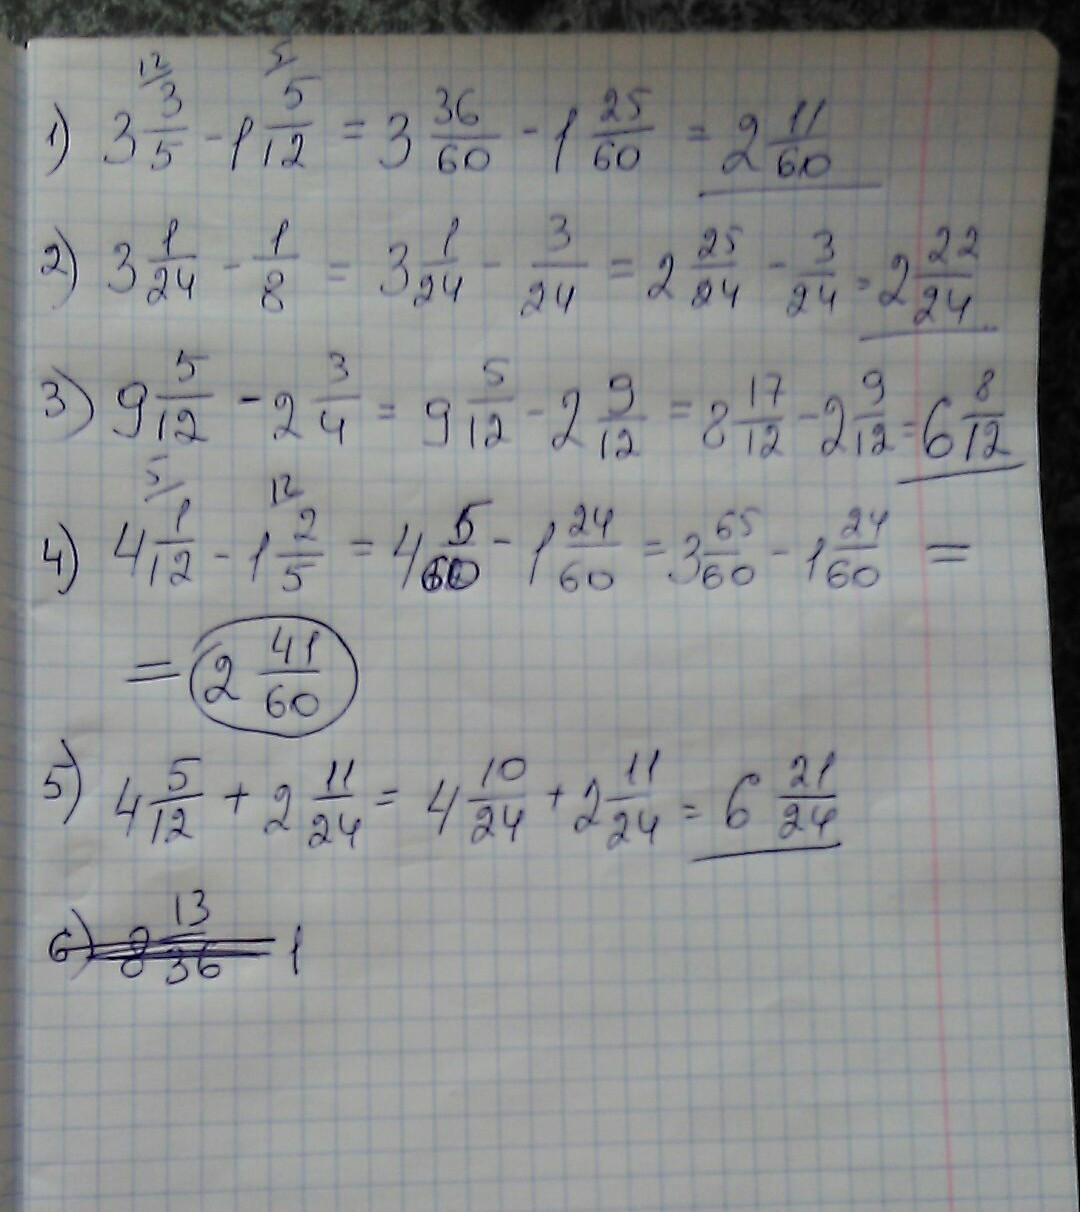 1) 3 12/ 3/5 - 1 5/ 5/12 = 3 36/60 - 1 25/60 = 2 11/60
2) 3 1/24 - 1/8 = 3 1/24 - 3/24 = 2 25/24 - 3/24 = 2 22/24
3) 9 5/12 - 2 3/4 = 9 5/12 - 2 9/12 = 8 17/12 - 2 9/12 = 6 8/12
4) 4 5/ 1/12 - 1 12/ 2/5 = 4 5/60 - 1 24/60 = 3 65/60 - 1 24/60 =
= 2 41/60
5) 4 5/12 + 2 11/24 = 4 10/24 + 2 11/24 = 6 21/24
6) 8 13/36 1